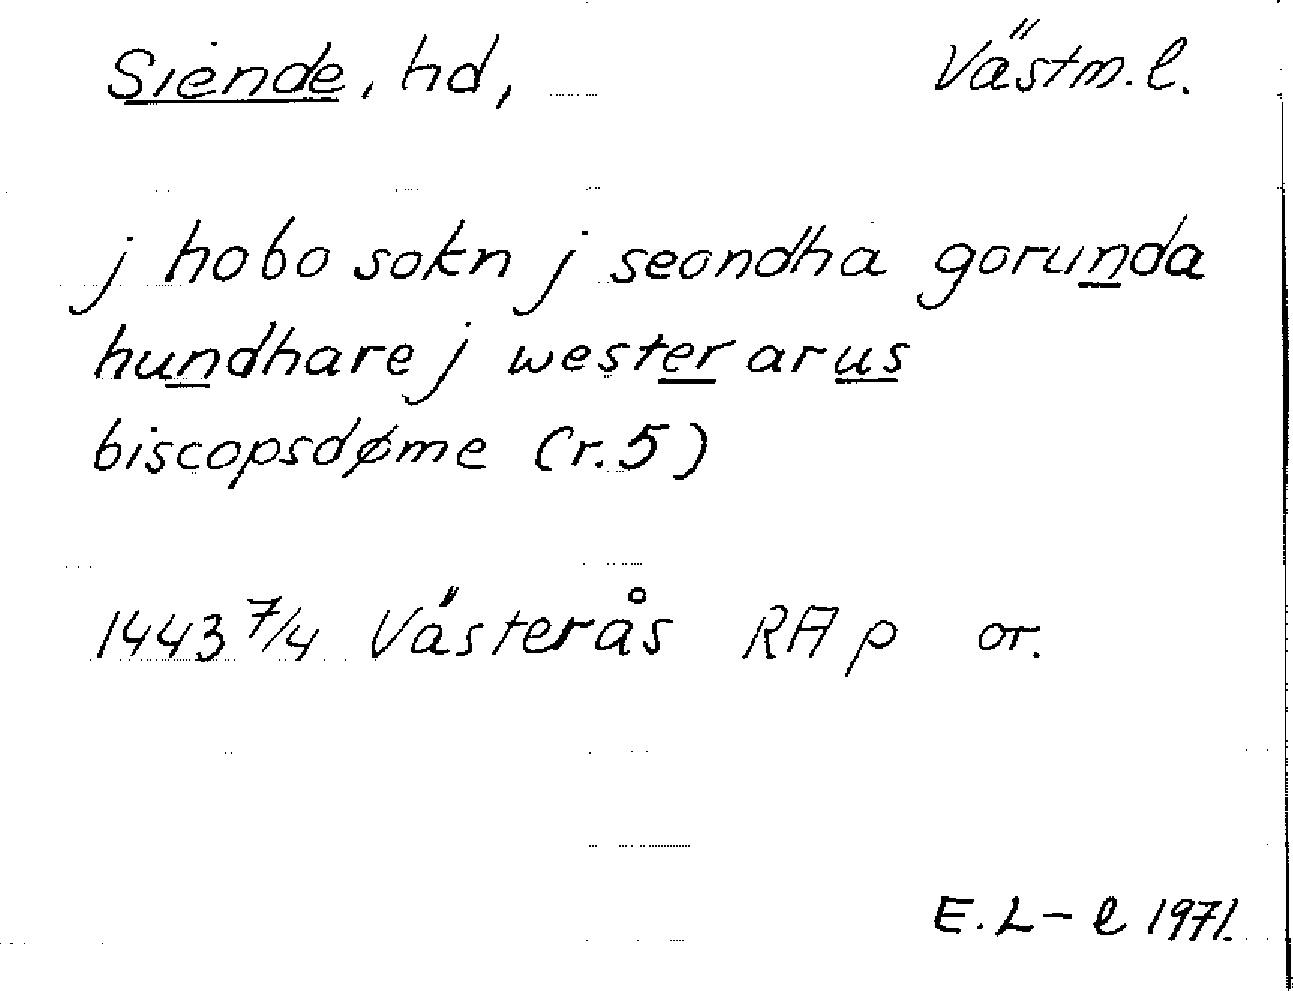 Siende, hd, Västm. l.
j hobo sokn j seondha gorunda
hundhare j wester arus
biscopsdøme (r. 5)
1443 7/4 Västerås RA p or.
E. L-l 1971.